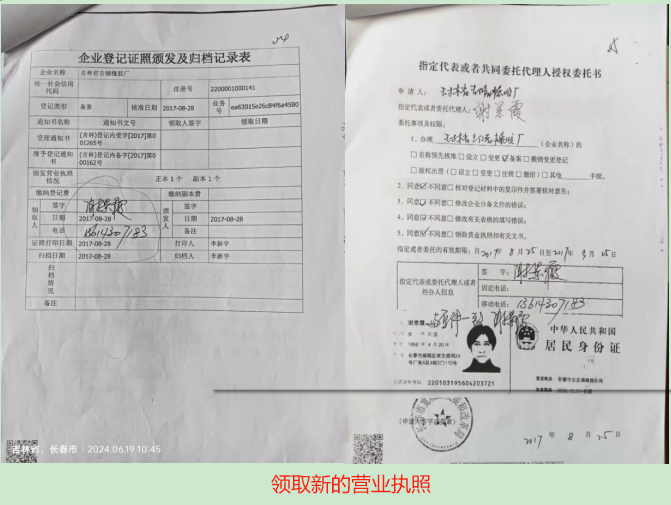 企业登记证照颁发及归档记录表
企业名称 吉林省吉储橡胶厂
统一社会信用代码 注册号 2200001000141
登记类型 备案 核准日期 2017-08-28 业务号 ea63015e26c84f6a4580
通知书名称 通知书文号 领取人签字 领取日期
受理通知书 (吉林)登记内受字[2017]第001265号
准予登记通知书 (吉林)登记内备字[2017]第000162号
颁发营业执照情况 正本1个 副本1个
缴纳登记费 缴纳副本费
领取人 签字 颁发人 签字
日期 2017-08-28 日期 2017-08-28
电话 13614307183 备注
证照打印日期 2017-08-28 打印人 李新宇
归档日期 2017-08-28 归档人 李新宇
归档情况
备注
吉林省，长春市 | 2024.06.19 10:45
指定代表或者共同委托代理人授权委托书
申请人：
指定代表或者委托代理人：
委托事项及权限：
1、办理 (企业名称)的
□名称预先核准 □设立 □变更 ☑备案 □撤销变更登记
□股权出质 (□设立 □变更 □注销 □撤销) □其他 手续。
2、同意☑不同意□核对登记材料中的复印件并签署核对意见；
3、同意☑不同意□修改企业自备文件的错误；
4、同意☑不同意□修改有关表格的填写错误；
5、同意☑不同意□领取营业执照和有关文书。
指定或者委托的有效期限：自2017年8月25日至2017年9月25日
指定代表或委托代理人或者经办人信息
签字：
固定电话：
移动电话：13614307183
与原件一致
中华人民共和国
居民身份证
220103195604203721
2017年8月25日
领取新的营业执照